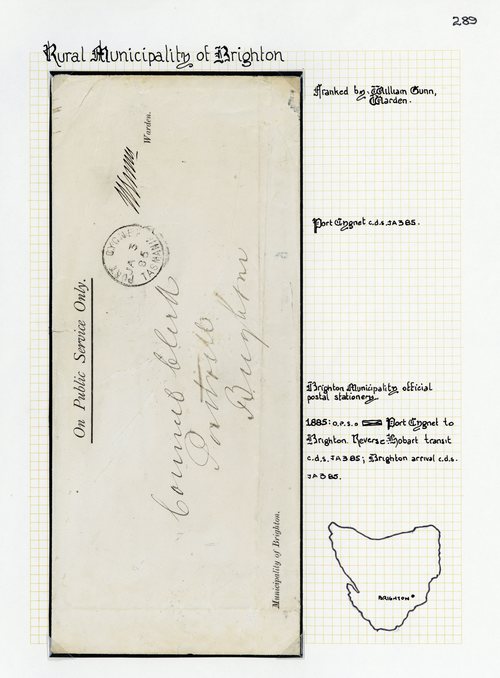 289
Rural Municipality of Brighton
Franked by: William Gunn,
Warden.
Warden.
PORT CYGNET
JA 3
85
TASMANIA
Port Cygnet c.d.s. JA 3 85.
On Public Service Only.
Council Clerk
Pontville
Brighton
Municipality of Brighton.
Brighton Municipality official
postal stationery.
1885: O.P.S.O Port Cygnet to
Brighton. Reverse: Hobart transit
c.d.s. JA 3 85; Brighton arrival c.d.s.
JA 3 85.
BRIGHTON